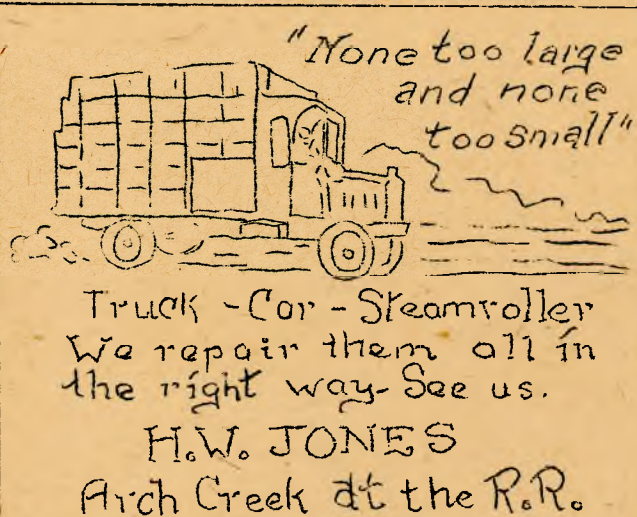 "None too large
and none
too small"
Truck - Car - Steamroller
We repair them all in
the right way - See us.
H.W. JONES
Arch Creek at the R.R.